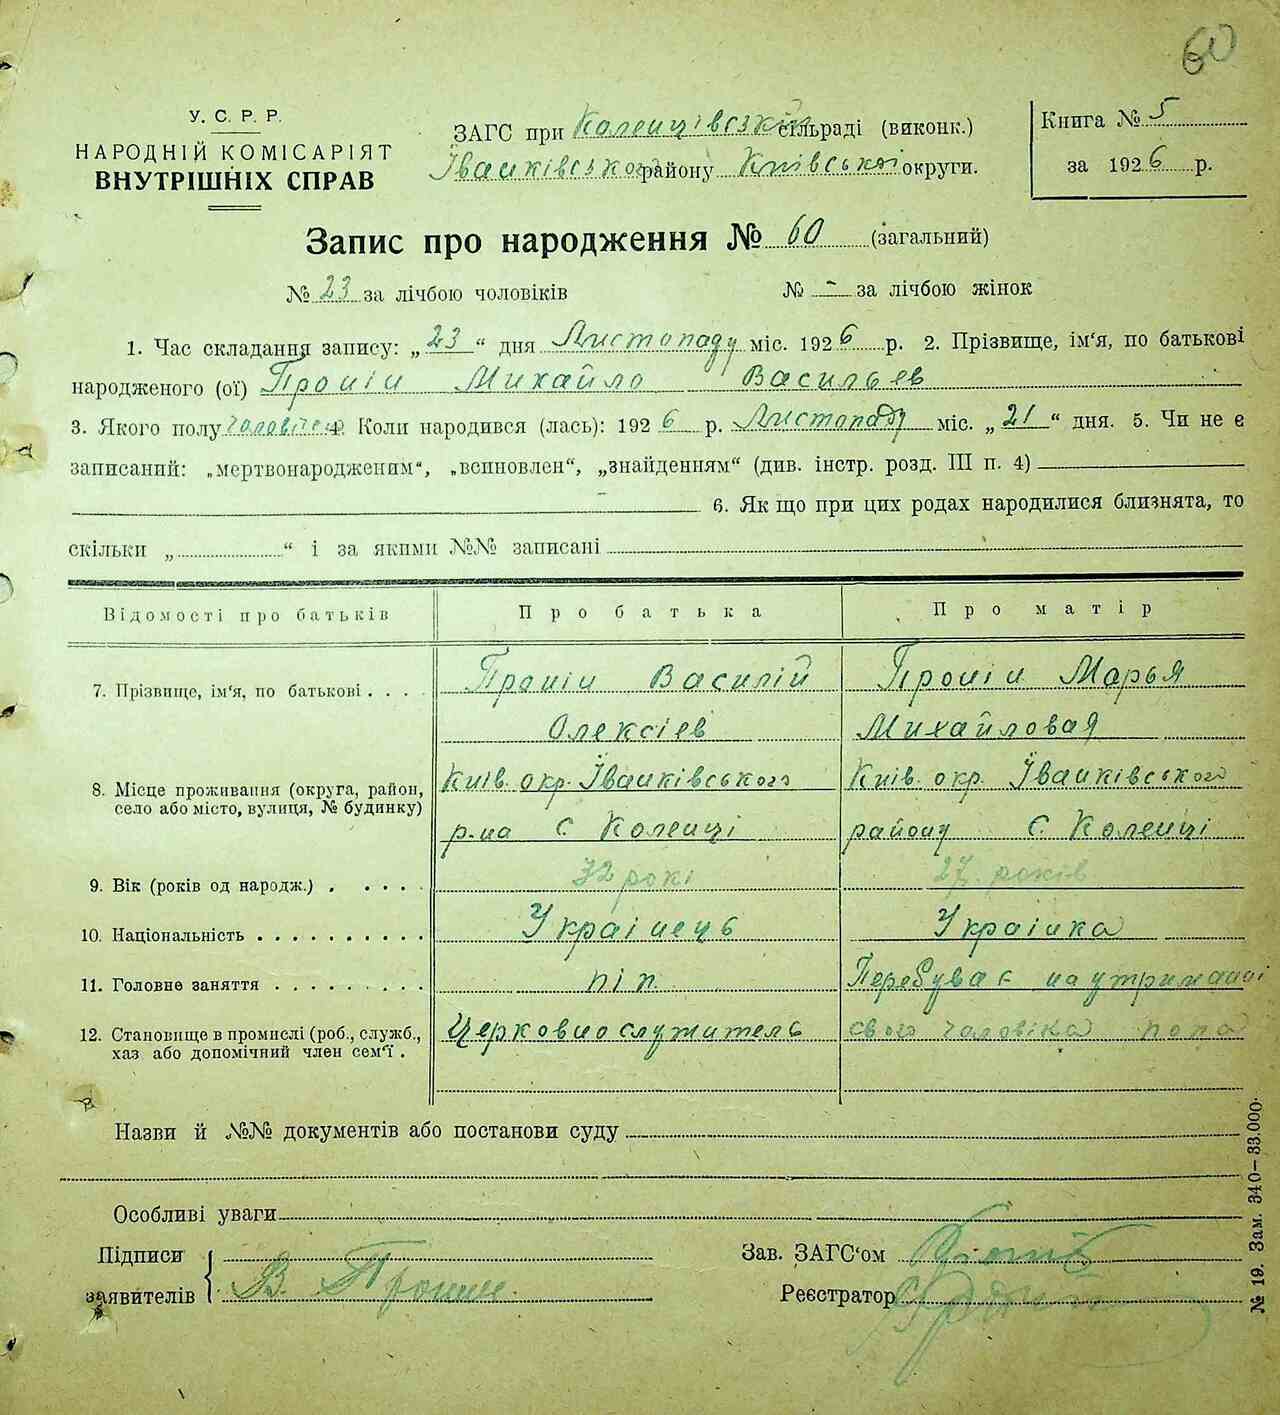 60
У. С. Р. Р.
НАРОДНІЙ КОМІСАРІЯТ
ВНУТРІШНІХ СПРАВ
ЗАГС при Коленцівській сільраді (виконк.)
Іванківського району Київської округи.
Книга № 5
за 1926 р.
Запис про народження № 60 (загальний)
№ 23 за лічбою чоловіків № - за лічбою жінок
1. Час складання запису: „23“ дня Листопаду міс. 1926 р. 2. Прізвище, ім‘я, по батькові
народженого (ої) Пронін Михайло Васильев
3. Якого полу чоловічої 4. Коли народився (лась): 1926 р. Листопаду міс. „21“ дня. 5. Чи не є
записаний: „мертвонародженим“, „всиновлен“, „знайденням“ (див. інстр. розд. III п. 4)
6. Як що при цих родах народилися близнята, то
скільки „ “ і за якими №№ записані
Відомості про батьків Про батька Про матір
7. Прізвище, ім‘я, по батькові . . . . Пронін Василій Пронін Марья
Олексієв Михайловая
8. Місце проживання (округа, район, село або місто, вулиця, № будинку) Київ. окр. Іванківського Київ. окр. Іванківського
р-на с Коленці району с. Коленці
9. Вік (років од народж.) . . . . . 32 рокі 27. років
10. Національність . . . . . . . . . . Українець Українка
11. Головне заняття . . . . . . . . . піп Перебуває на утриманні
12. Становище в промислі (роб., служб., хаз або допомічний член сем‘ї . Церковнослужитель свого чоловіка попа
Назви й №№ документів або постанови суду
Особливі уваги
Підписи заявителів В. Пронин
Зав. ЗАГС‘ом
Реєстратор
№ 19. Зам. 340—33.000.